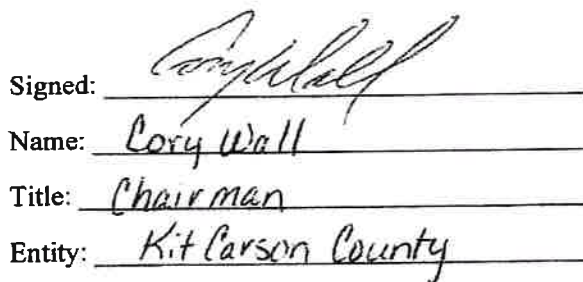 Signed: Cory Wall
Name: Cory Wall
Title: Chairman
Entity: Kit Carson County